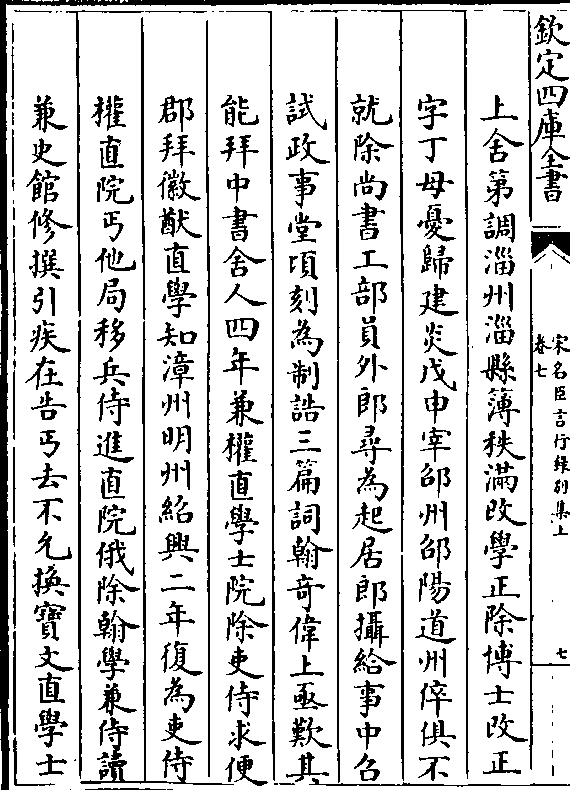 欽定四庫全書
宋名臣言行錄別集上
卷七
七
上舍第調淄州淄縣簿秩滿改學正除博士改正
字丁母憂歸建炎戊申宰邵州邵陽道州倅俱不
就除尚書工部員外郎尋為起居郎攝給事中召
試政事堂頃刻為制誥三篇詞翰竒偉上亟歎其
能拜中書舍人四年兼權直學士院除吏侍求便
郡拜徽猷直學知漳州明州紹興二年復為吏侍
權直院丐他局移兵侍進直院俄除翰學兼侍讀
兼史館修撰引疾在告丐去不允換寶文直學士